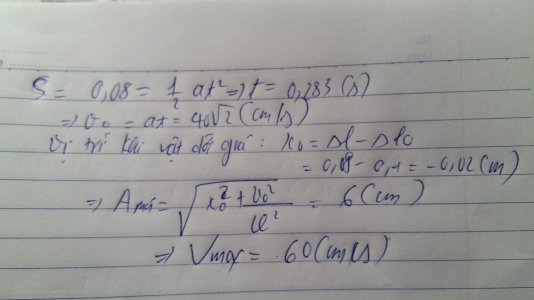 S = 0,08 = 1/2 at² => t = 0,283 (s)
=> v₀ = at = 40√2 (cm/s)
Vị trí khi vật dời giá: x₀ = Δl - Δl₀
= 0,08 - 0,1 = -0,02 (m)
=> A mới = √(x₀² + v₀²/ω²) = 6 (cm)
=> Vmax = 60 (cm/s)